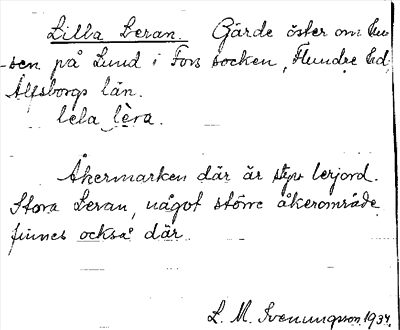 Lilla Leran. Gärde öster om hu-
-sen på Lund i Fors socken, Flundre hd,
Älfsborgs län.
lela lèra.
Åkermarken där är styv lerjord.
Stora Leran, något större åkerområde
finnes också där.
L. M. Svenungsson 1934.